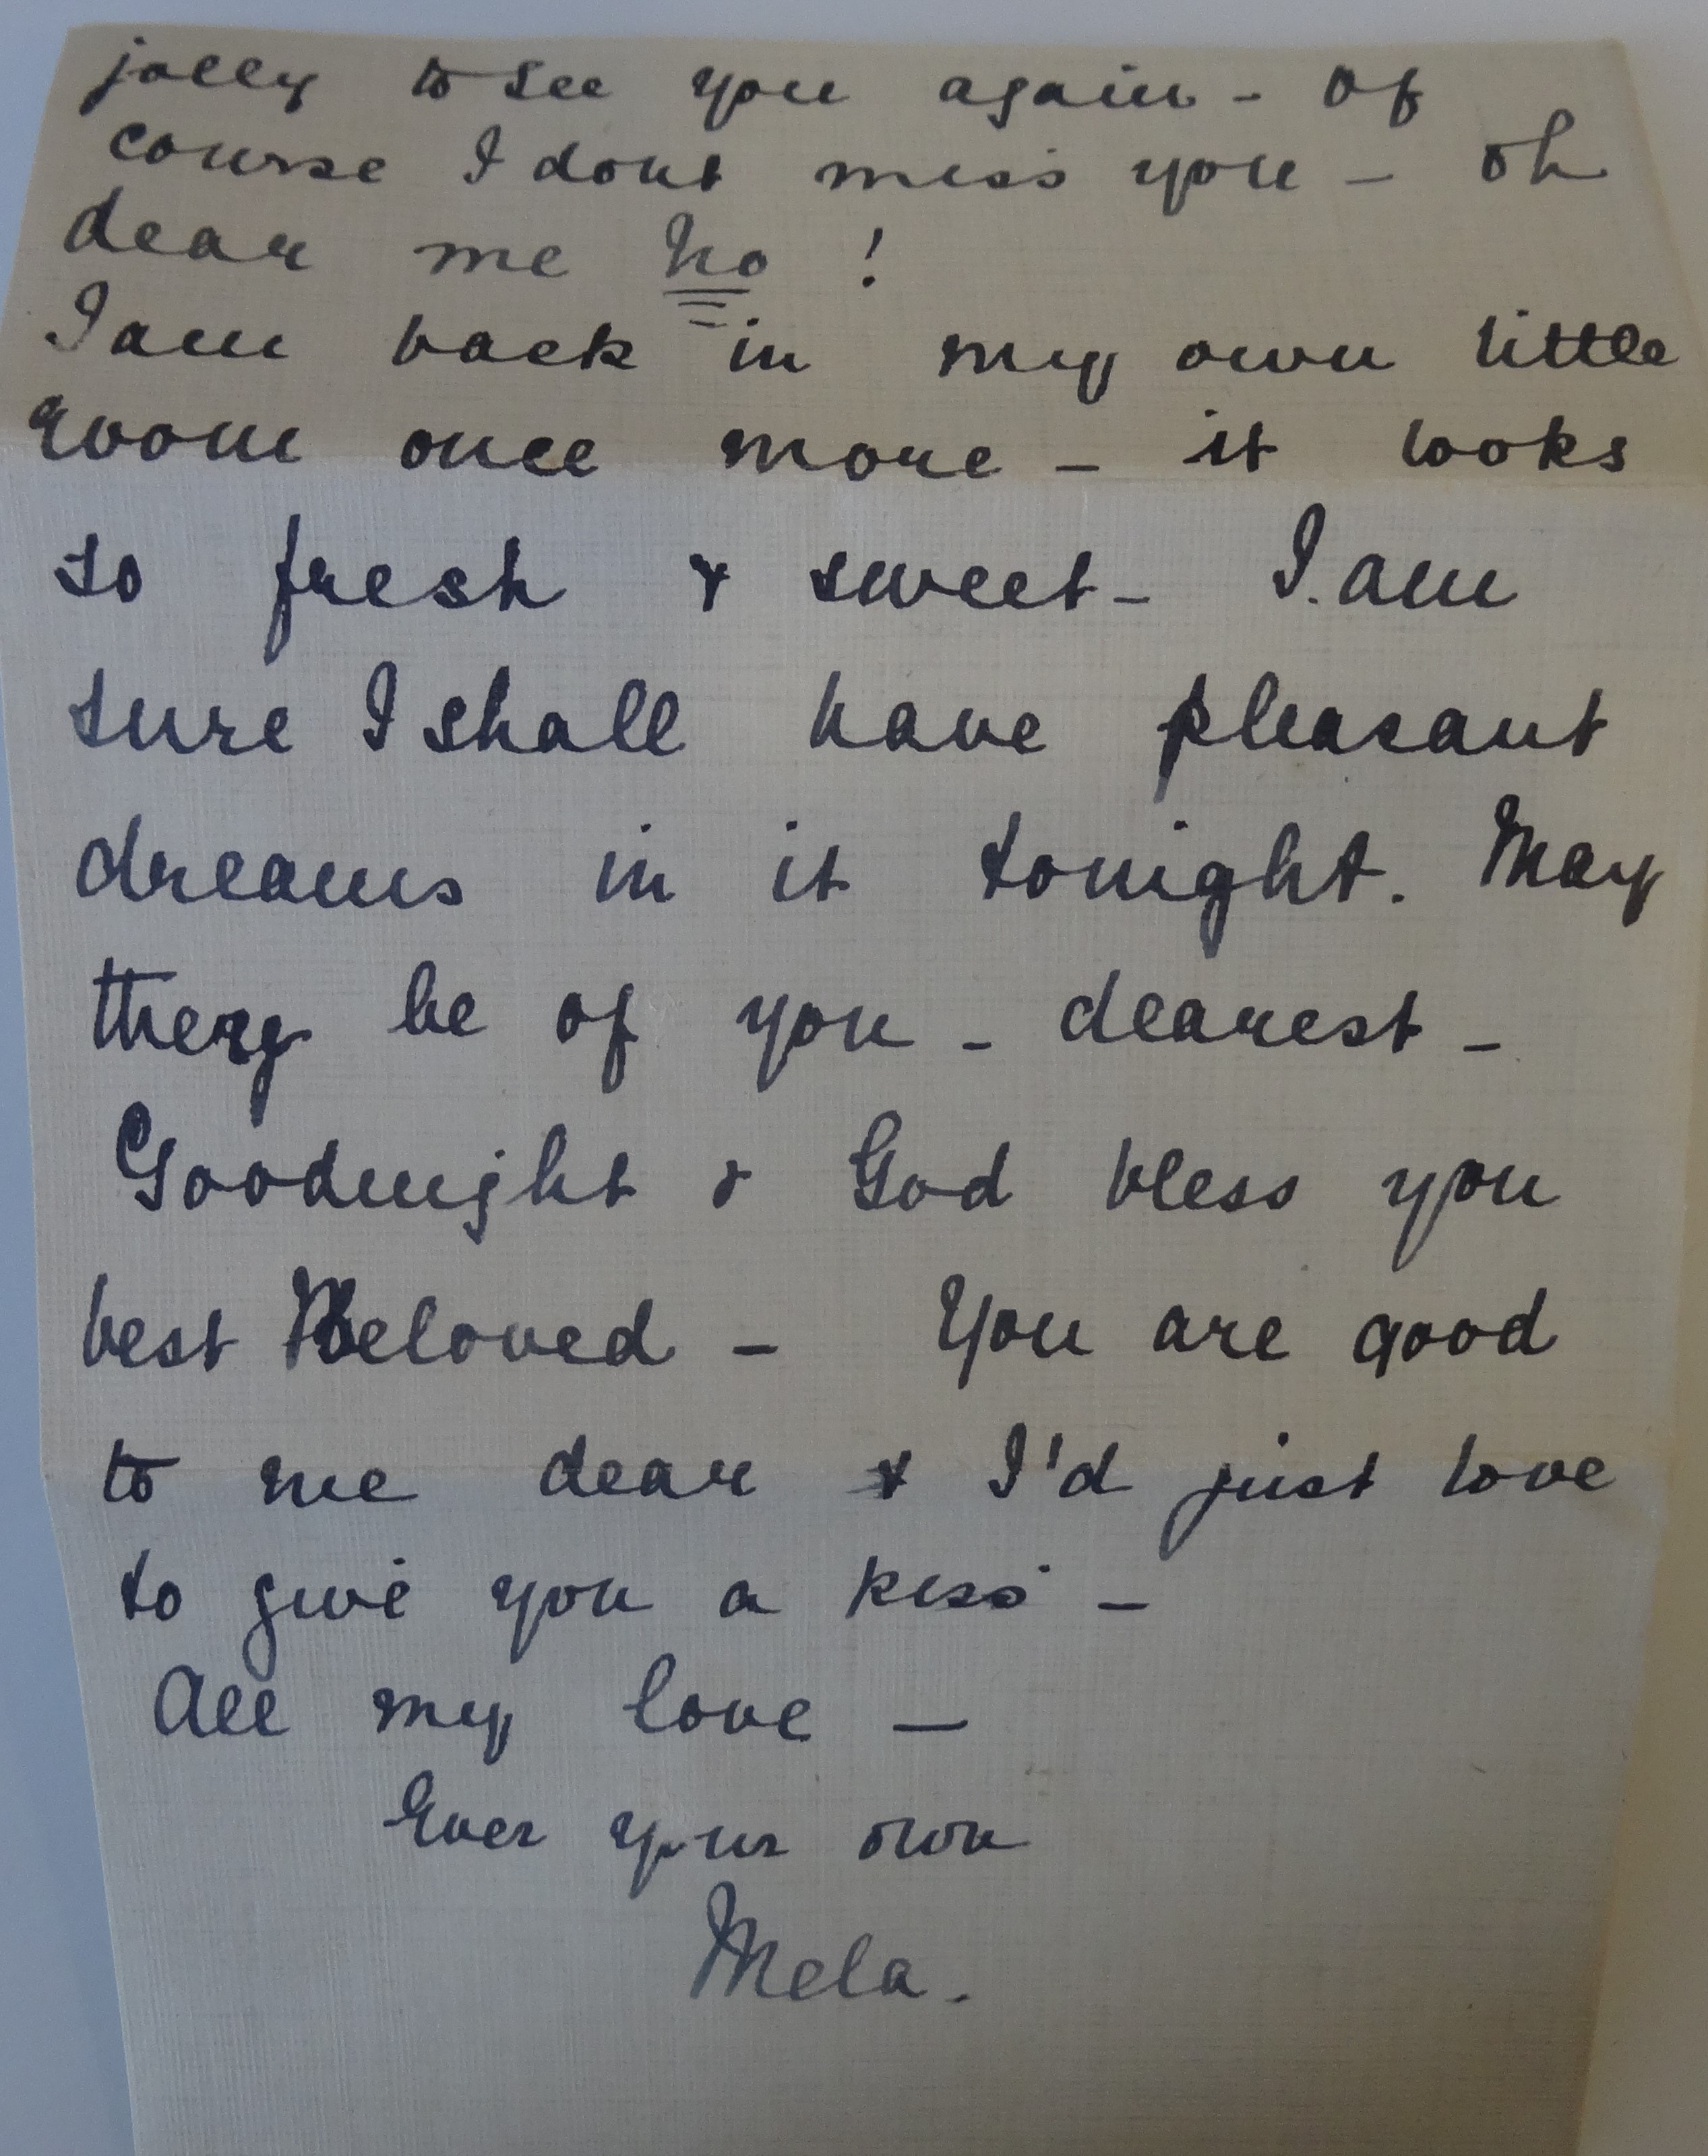 jolly to see you again - Of
course I dont miss you - oh
dear me No !
I am back in my own little
room once more - it looks
so fresh & sweet - I am
sure I shall have pleasant
dreams in it tonight. May
they be of you - dearest -
Goodnight & God bless you
best Beloved - You are good
to me dear & I'd just love
to give you a kiss -
All my love -
Ever your own
Mela.